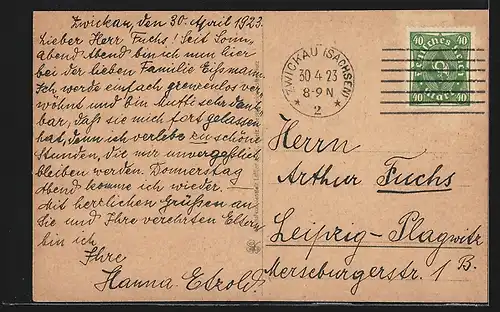 Zwickau, den 30. April 1923.
Lieber Herr Fuchs! Seit Sonn-
abend Abend bin ich nun hier
bei der lieben Familie Eißmann.
Ich werde einfach grenenlos ver-
wöhnt und bin Mutti sehr dank-
bar, daß sie mich fort gelassen
hat, denn ich verlebe zu schöne
Stunden, die mir unvergeßlich
bleiben werden. Donnerstag
Abend komme ich wieder.
Mit herzlichen Grüßen an
Sie und Ihre verehrten Eltern
bin ich
Ihre
Hanna Etzold.
ZWICKAU (SACHSEN)
30.4.23
8-9N
* 2 *
40 40
Deutsches Reich
40 40
Herrn
Arthur Fuchs
Leipzig-Plagwitz
Merseburgerstr. 1 B.